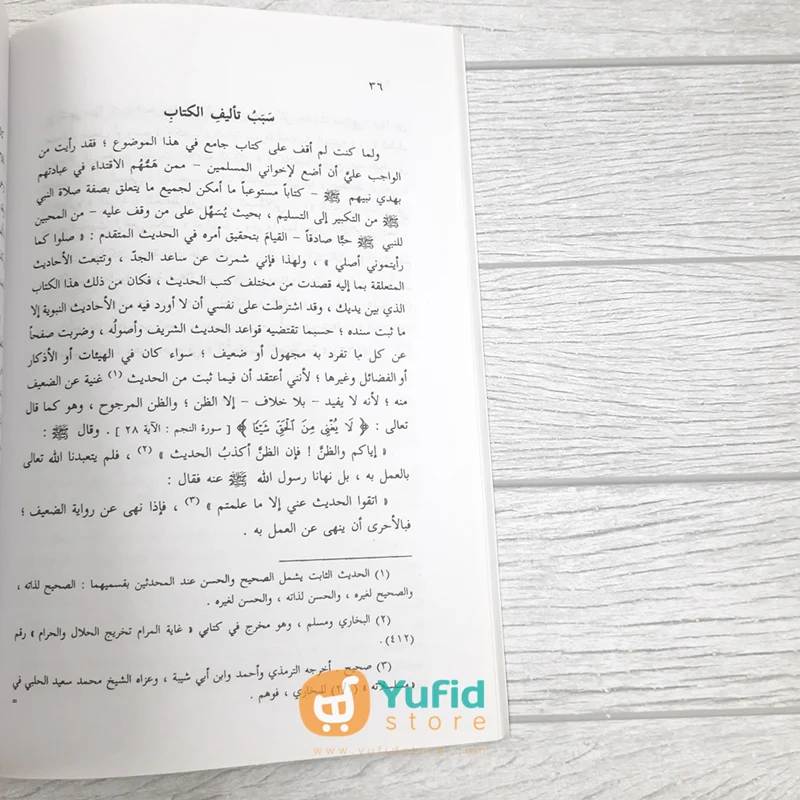 ٣٦
سَبَبُ تأليفِ الكتابِ
ولما كنت لم أقف على كتاب جامع في هذا الموضوع ؛ فقد رأيت من
الواجب عليَّ أن أضع لإخواني المسلمين – ممن هَمُّهُم الاقتداء في عبادتهم
بهدي نبيهم ﷺ – كتاباً مستوعباً ما أمكن لجميع ما يتعلق بصفة صلاة النبي
ﷺ من التكبير إلى التسليم ، بحيث يُسَهِّل على من وقف عليه – من المحبين
للنبي ﷺ حبًّا صادقاً – القيامَ بتحقيق أمره في الحديث المتقدم : « صلوا كما
رأيتموني أصلي » ، ولهذا فإني شمرت عن ساعد الجدّ ، وتتبعت الأحاديث
المتعلقة بما إليه قصدت من مختلف كتب الحديث ، فكان من ذلك هذا الكتاب
الذي بين يديك ، وقد اشترطت على نفسي أن لا أورد فيه من الأحاديث النبوية إلا
ما ثبت سنده ؛ حسبما تقتضيه قواعد الحديث الشريف وأصولُه ، وضربت صفحاً
عن كل ما تفرد به مجهول أو ضعيف ؛ سواء كان في الهيئات أو الأذكار
أو الفضائل وغيرها ؛ لأنني أعتقد أن فيما ثبت من الحديث (١) غنية عن الضعيف
منه ؛ لأنه لا يفيد – بلا خلاف – إلا الظن ؛ والظن المرجوح ، وهو كما قال
تعالى : ﴿ لَا يُغْنِي مِنَ الْحَقِّ شَيْئًا ﴾ [ سورة النجم : الآية ٢٨ ] . وقال ﷺ :
« إياكم والظنَّ ! فإن الظنَّ أكذبُ الحديث » (٢) ، فلم يتعبدنا الله تعالى
بالعمل به ، بل نهانا رسول الله ﷺ عنه فقال :
« اتقوا الحديث عني إلا ما علمتم » (٣) ، فإذا نهى عن رواية الضعيف ؛
فبالأحرى أن ينهى عن العمل به .
(١) الحديث الثابت يشمل الصحيح والحسن عند المحدثين بقسميهما : الصحيح لذاته ،
والصحيح لغيره ، والحسن لذاته ، والحسن لغيره .
(٢) البخاري ومسلم ، وهو مخرج في كتابي « غاية المرام تخريج الحلال والحرام » رقم
(٤١٢) .
(٣) صحيح . أخرجه الترمذي وأحمد وابن أبي شيبة ، وعزاه الشيخ محمد سعيد الحلبي في
للبخاري ، فوهم .
=
Yufid
store